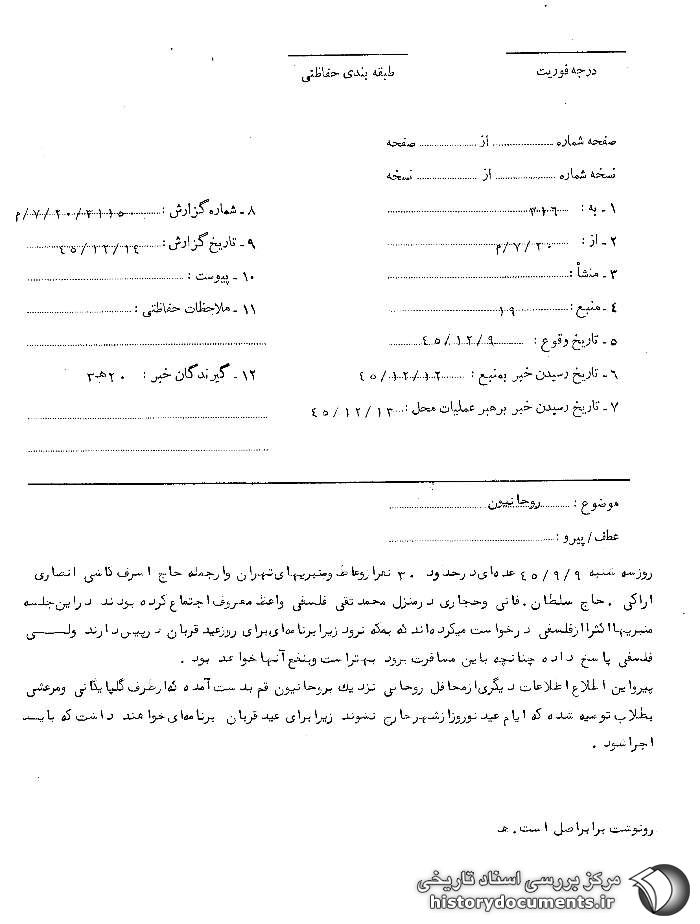 درجه فوریت
طبقه بندی حفاظتی
صفحه شماره ........ از ........ صفحه
نسخه شماره ........ از ........ نسخه
۱ - به : ۳۱۶
۲ - از : ۲۰ / ۷ / م
۳ - منشأ :
۴ - منبع : ۱۹
۵ - تاریخ وقوع : ۴۵/۱۲/۹
۶ - تاریخ رسیدن خبر بمنبع : ۴۵/۱۲/۱۲
۷ - تاریخ رسیدن خبر برهبر عملیات محل : ۴۵/۱۲/۱۳
۸ - شماره گزارش : ۳۱۱۵۰/۲۰/۷/م
۹ - تاریخ گزارش : ۴۵/۱۲/۱۴
۱۰ - پیوست :
۱۱ - ملاحظات حفاظتی :
۱۲ - گیرندگان خبر : ۲۰ هـ ۳
موضوع : روحانیون
عطف/ پیرو :
روز سه شنبه ۴۵/۹/۹ عده‌ای در حدود ۳۰ نفر از وعاظ و منبریهای تهران و ازجمله حاج اشرف کاشی انصاری
اراکی . حاج سلطان . فانی و حجازی در منزل محمد تقی فلسفی واعظ معروف اجتماع کرده بودند در این جلسه
منبریها اکثرا از فلسفی درخواست میکرده‌اند که بمکه نرود زیرا برنامه‌ای برای روز عید قربان در پیش دارند ولی
فلسفی پاسخ داده چنانچه باین مسافرت برود بهتر است و بنفع آنها خواهد بود .
پیرو این اطلاع اطلاعات دیگری از محافل روحانی نزدیک بروحانیون قم بدست آمده که از طرف گلپایگانی و مرعشی
بطلاب توصیه شده که ایام عید نوروز از شهر خارج نشوند زیرا برای عید قربان برنامه‌ای خواهند داشت که باید
اجرا شود .
رونوشت برابر اصل است . هـ
مرکز بررسی اسناد تاریخی
historydocuments.ir